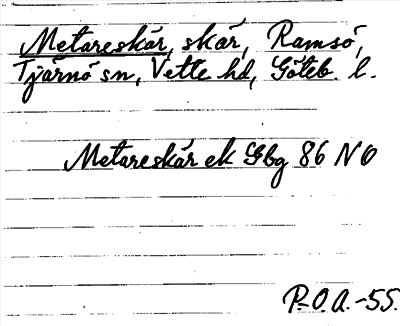 Metareskär, skär, Ramsö,
Tjärnö sn, Vette hd, Göteb. l.
Metareskär ek Gbg 86 NO
P.-O.A.-55.